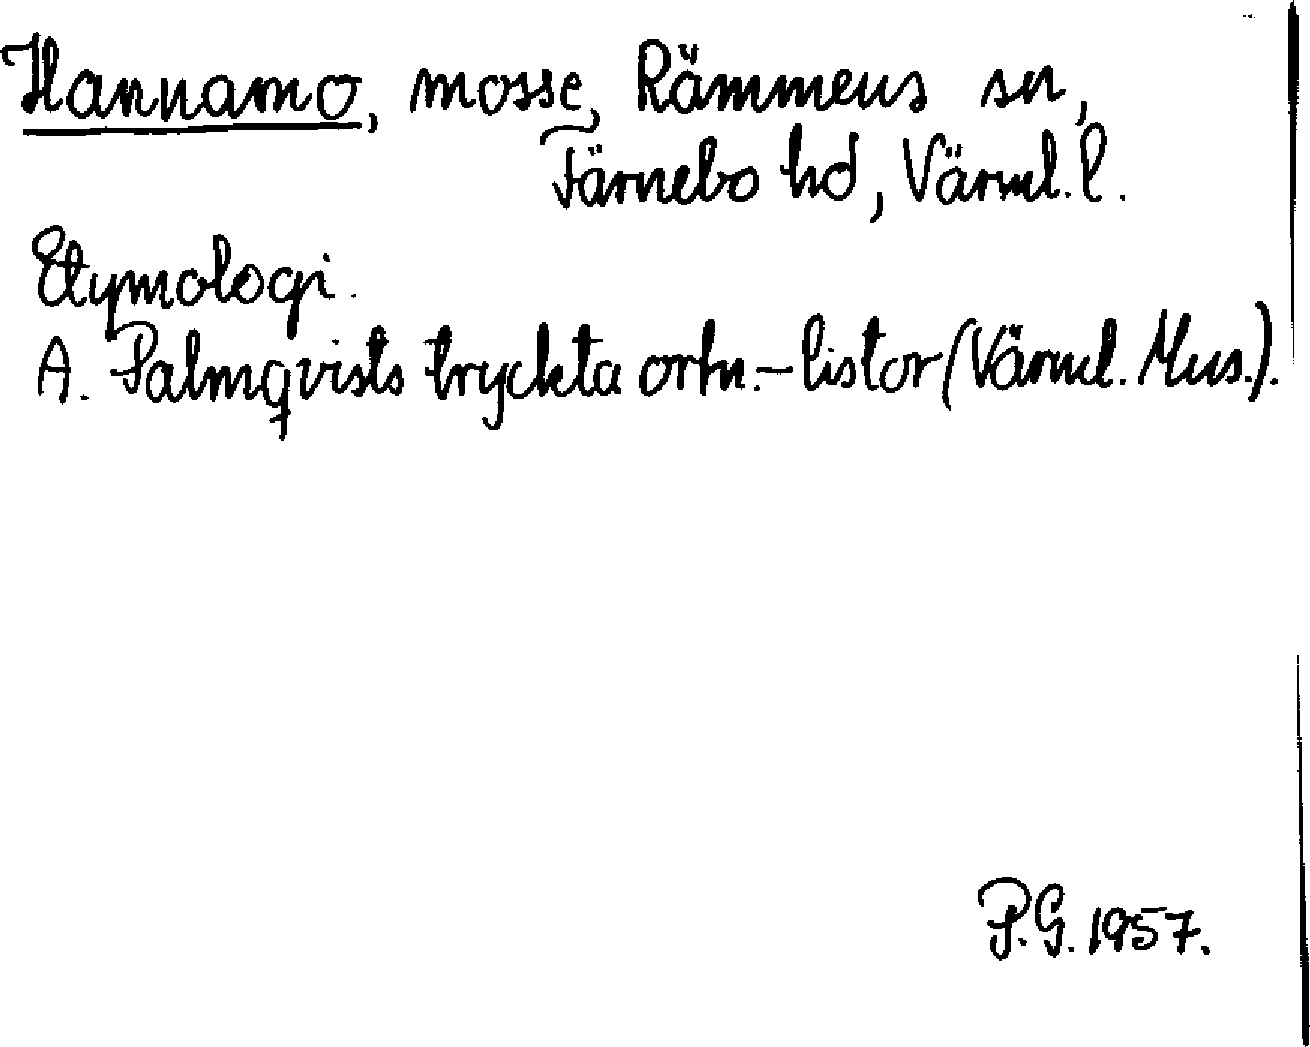 Hannamo, mosse, Rämmens sn,
Färnebo hd, Värml. l.
Etymologi.
A. Palmqvists tryckta ortn.-listor (Värml. Mus.).
P.G. 1957.